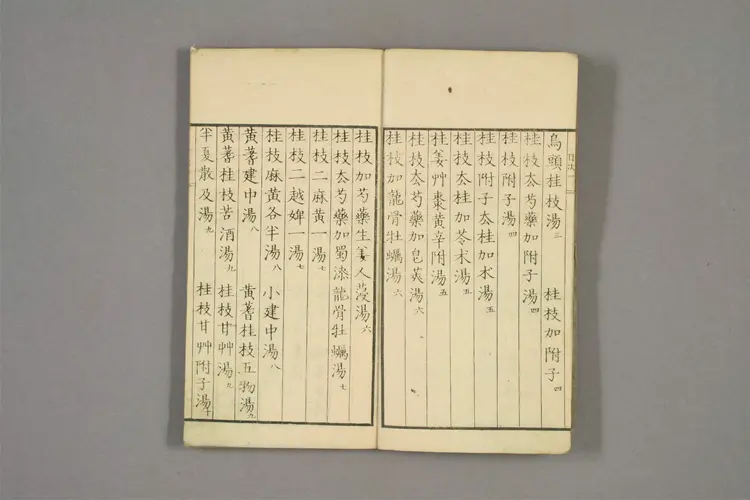 目次
烏頭桂枝湯三 桂枝加附子四
桂枝去芍藥加附子湯四
桂枝附子湯四
桂枝附子去桂加朮湯五
桂枝去桂加苓朮湯五
桂姜艸棗黃辛附湯五
桂枝去芍藥加皂莢湯六
桂枝加龍骨牡蠣湯六
桂枝加芍藥生姜人葠湯六
桂枝去芍藥加蜀漆龍骨牡蠣湯七
桂枝二麻黃一湯七
桂枝二越婢一湯七
桂枝麻黃各半湯八 小建中湯八
黃蓍建中湯八 黃蓍桂枝五物湯九
黃蓍桂枝苦酒湯九 桂枝甘艸湯九
半夏散及湯九 桂枝甘艸附子湯十